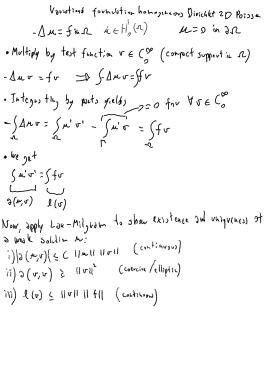 Variational formulation homogeneous Dirichlet 2D Poisson
-Δu = f in Ω u ∈ H¹₀(Ω) u = 0 in ∂Ω
• Multiply by test function v ∈ C₀^∞ (compact support in Ω)
-Δu v = fv ⇒ ∫-Δu v = ∫fv
• Integrating by parts yields = 0 for ∀ v ∈ C₀^∞
-∫_Ω Δu v = ∫_Ω u'v' - ∫_Γ u'v = ∫_Ω fv
• We get
∫u'v' = ∫fv
a(u,v) l(v)
Now, apply Lax-Milgram to show existence and uniqueness of
a weak solution u:
i) |a(u,v)| ≤ C ||u|| ||v|| (continuous)
ii) a(v,v) ≥ ||v||² (coercive/elliptic)
iii) l(v) ≤ ||v|| ||f|| (continuous)